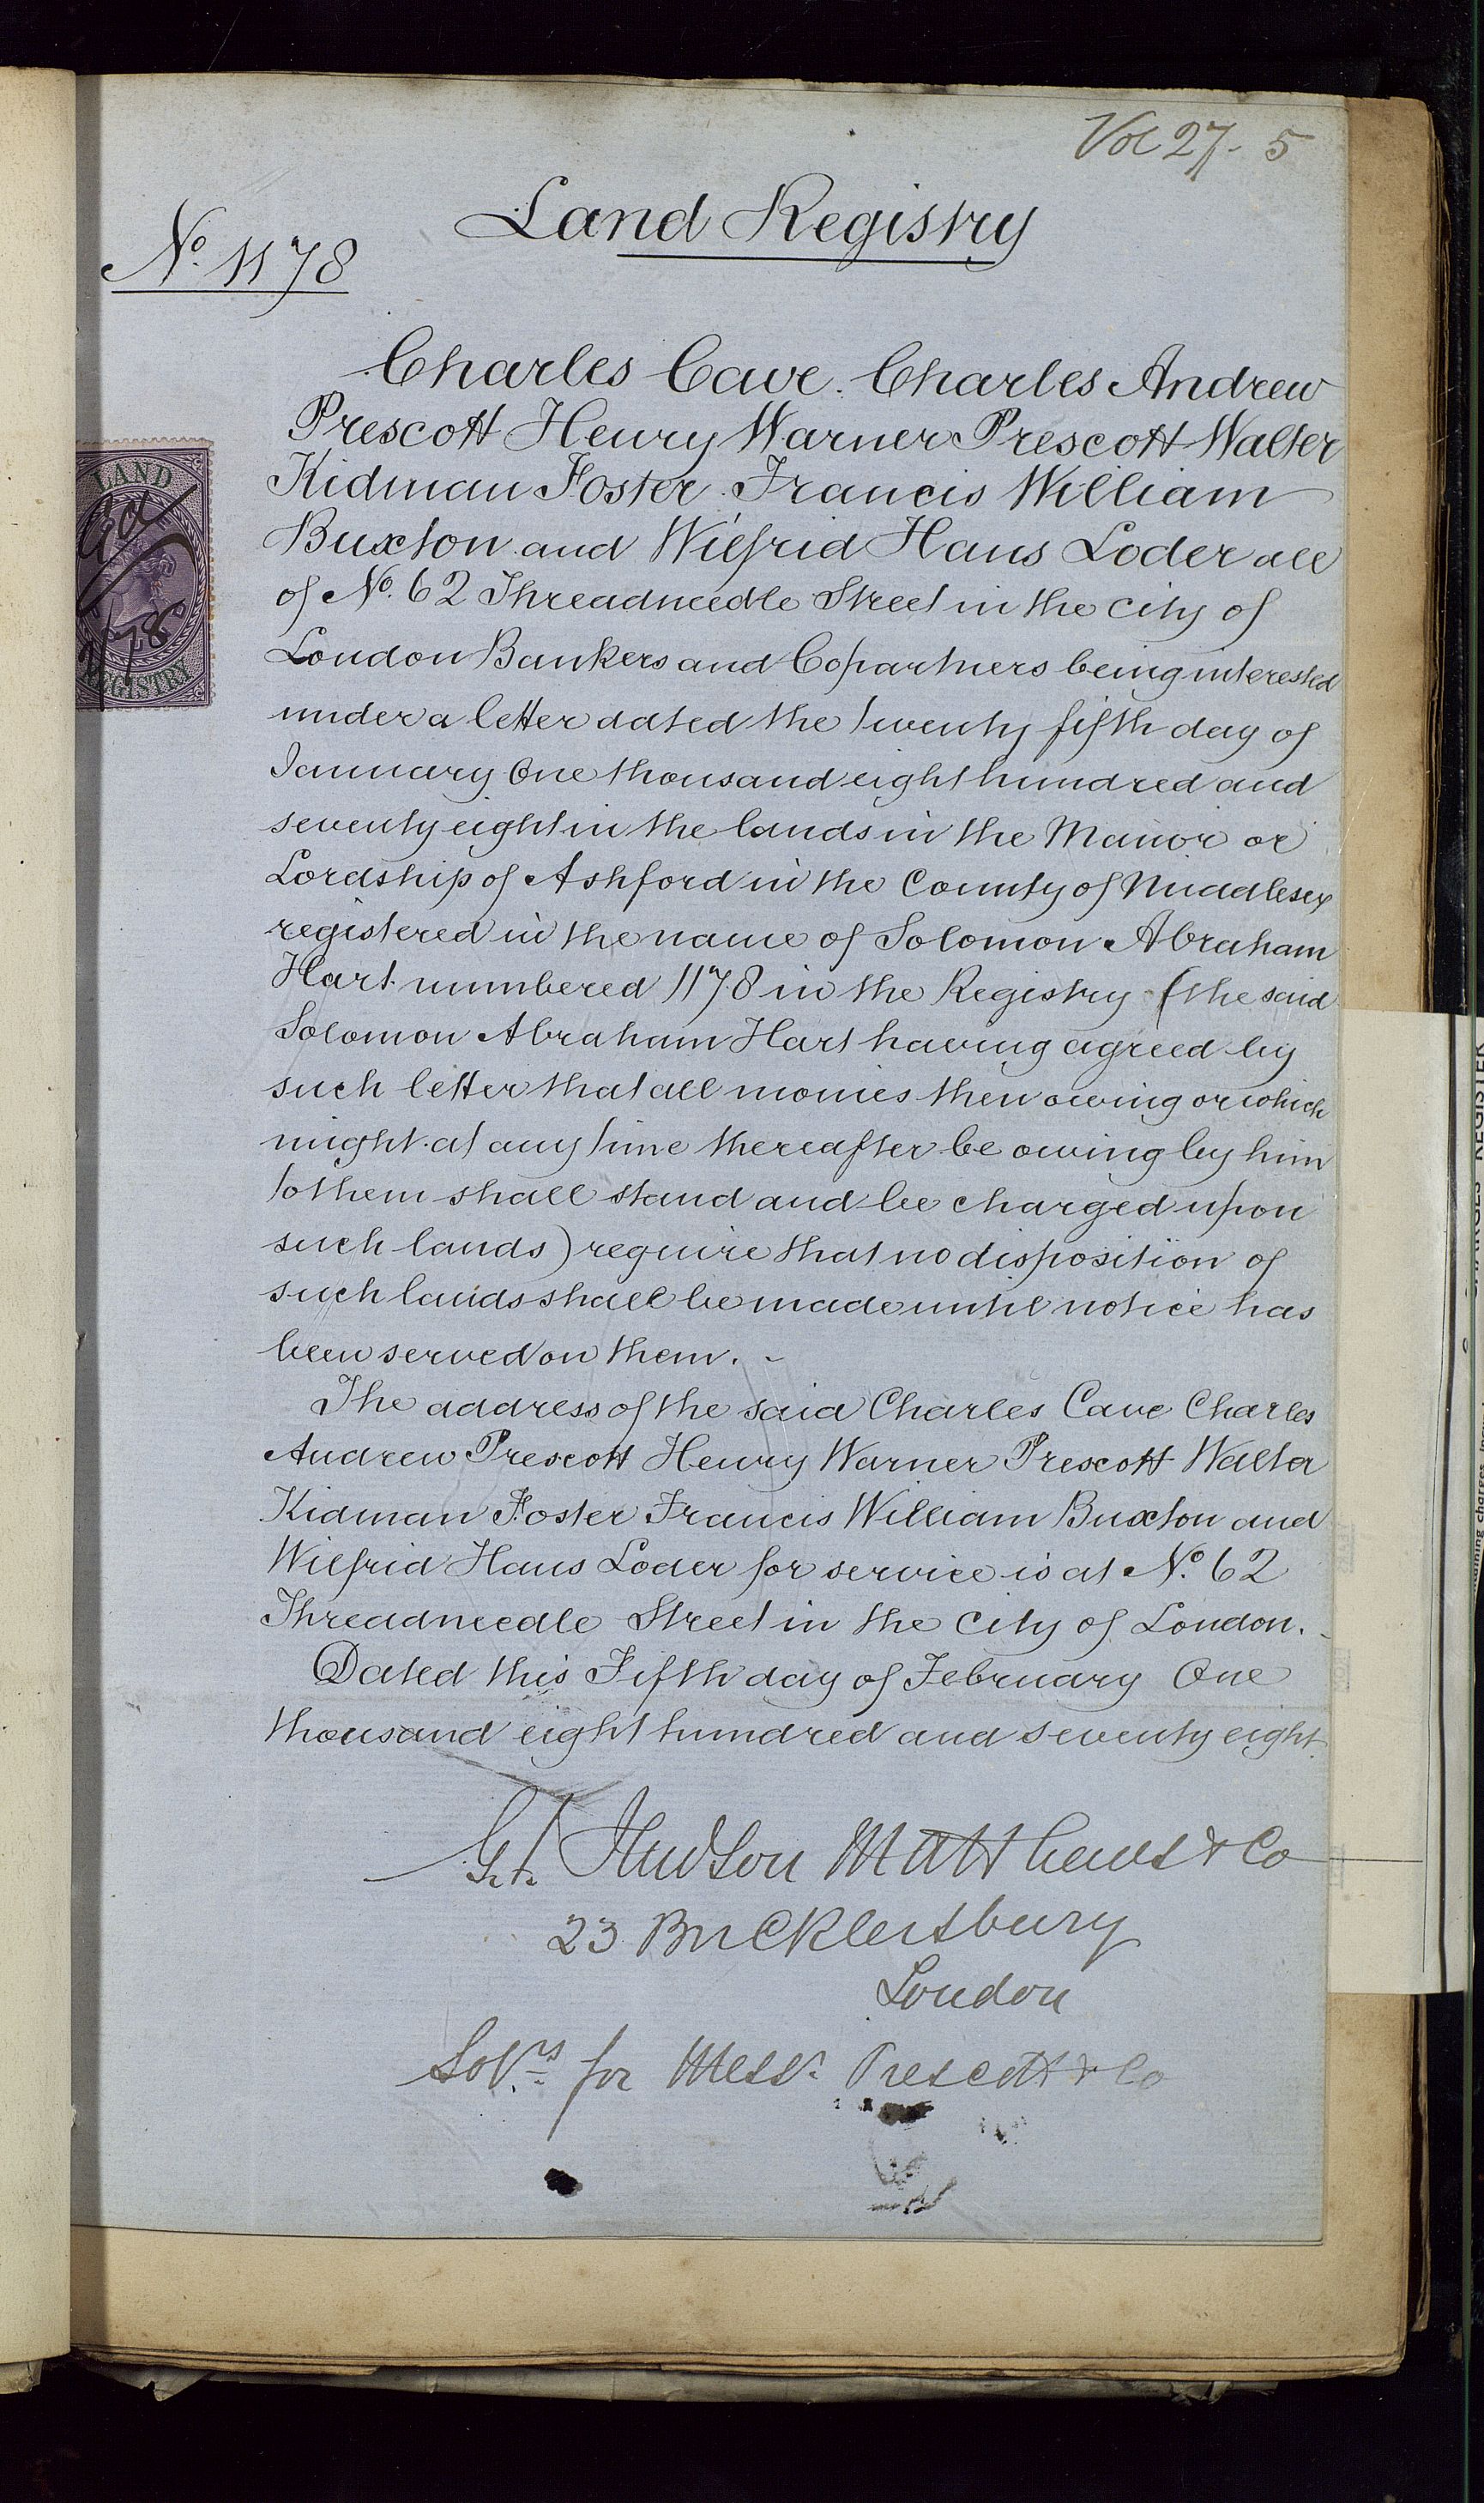 Vol 27. 5
Land Registry
No. 1178
Charles Cave. Charles Andrew
Prescott Henry Warner Prescott Walter
Kidman Foster. Francis William
Buxton and Wilfrid Hans Loder all
of No. 62 Threadneedle Street in the City of
London Bankers and Copartners being interested
under a letter dated the twenty fifth day of
January One thousand eight hundred and
seventy eight in the lands in the Manor or
Lordship of Ashford in the County of Middlesex
registered in the name of Solomon Abraham
Hart numbered 1178 in the Registry (the said
Solomon Abraham Hart having agreed by
such letter that all monies then owing or which
might at any time thereafter be owing by him
to them shall stand and be charged upon
such lands) require that no disposition of
such lands shall be made until notice has
been served on them. -
The address of the said Charles Cave Charles
Andrew Prescott Henry Warner Prescott Walter
Kidman Foster Francis William Buxton and
Wilfrid Hans Loder for service is at No. 62
Threadneedle Street in the City of London. -
Dated this Fifth day of February One
thousand eight hundred and seventy eight.
Hudson Matthews & Co
23 Bucklersbury
London
Solrs. for Messr. Prescott & Co
LAND
REGISTRY
REGISTER